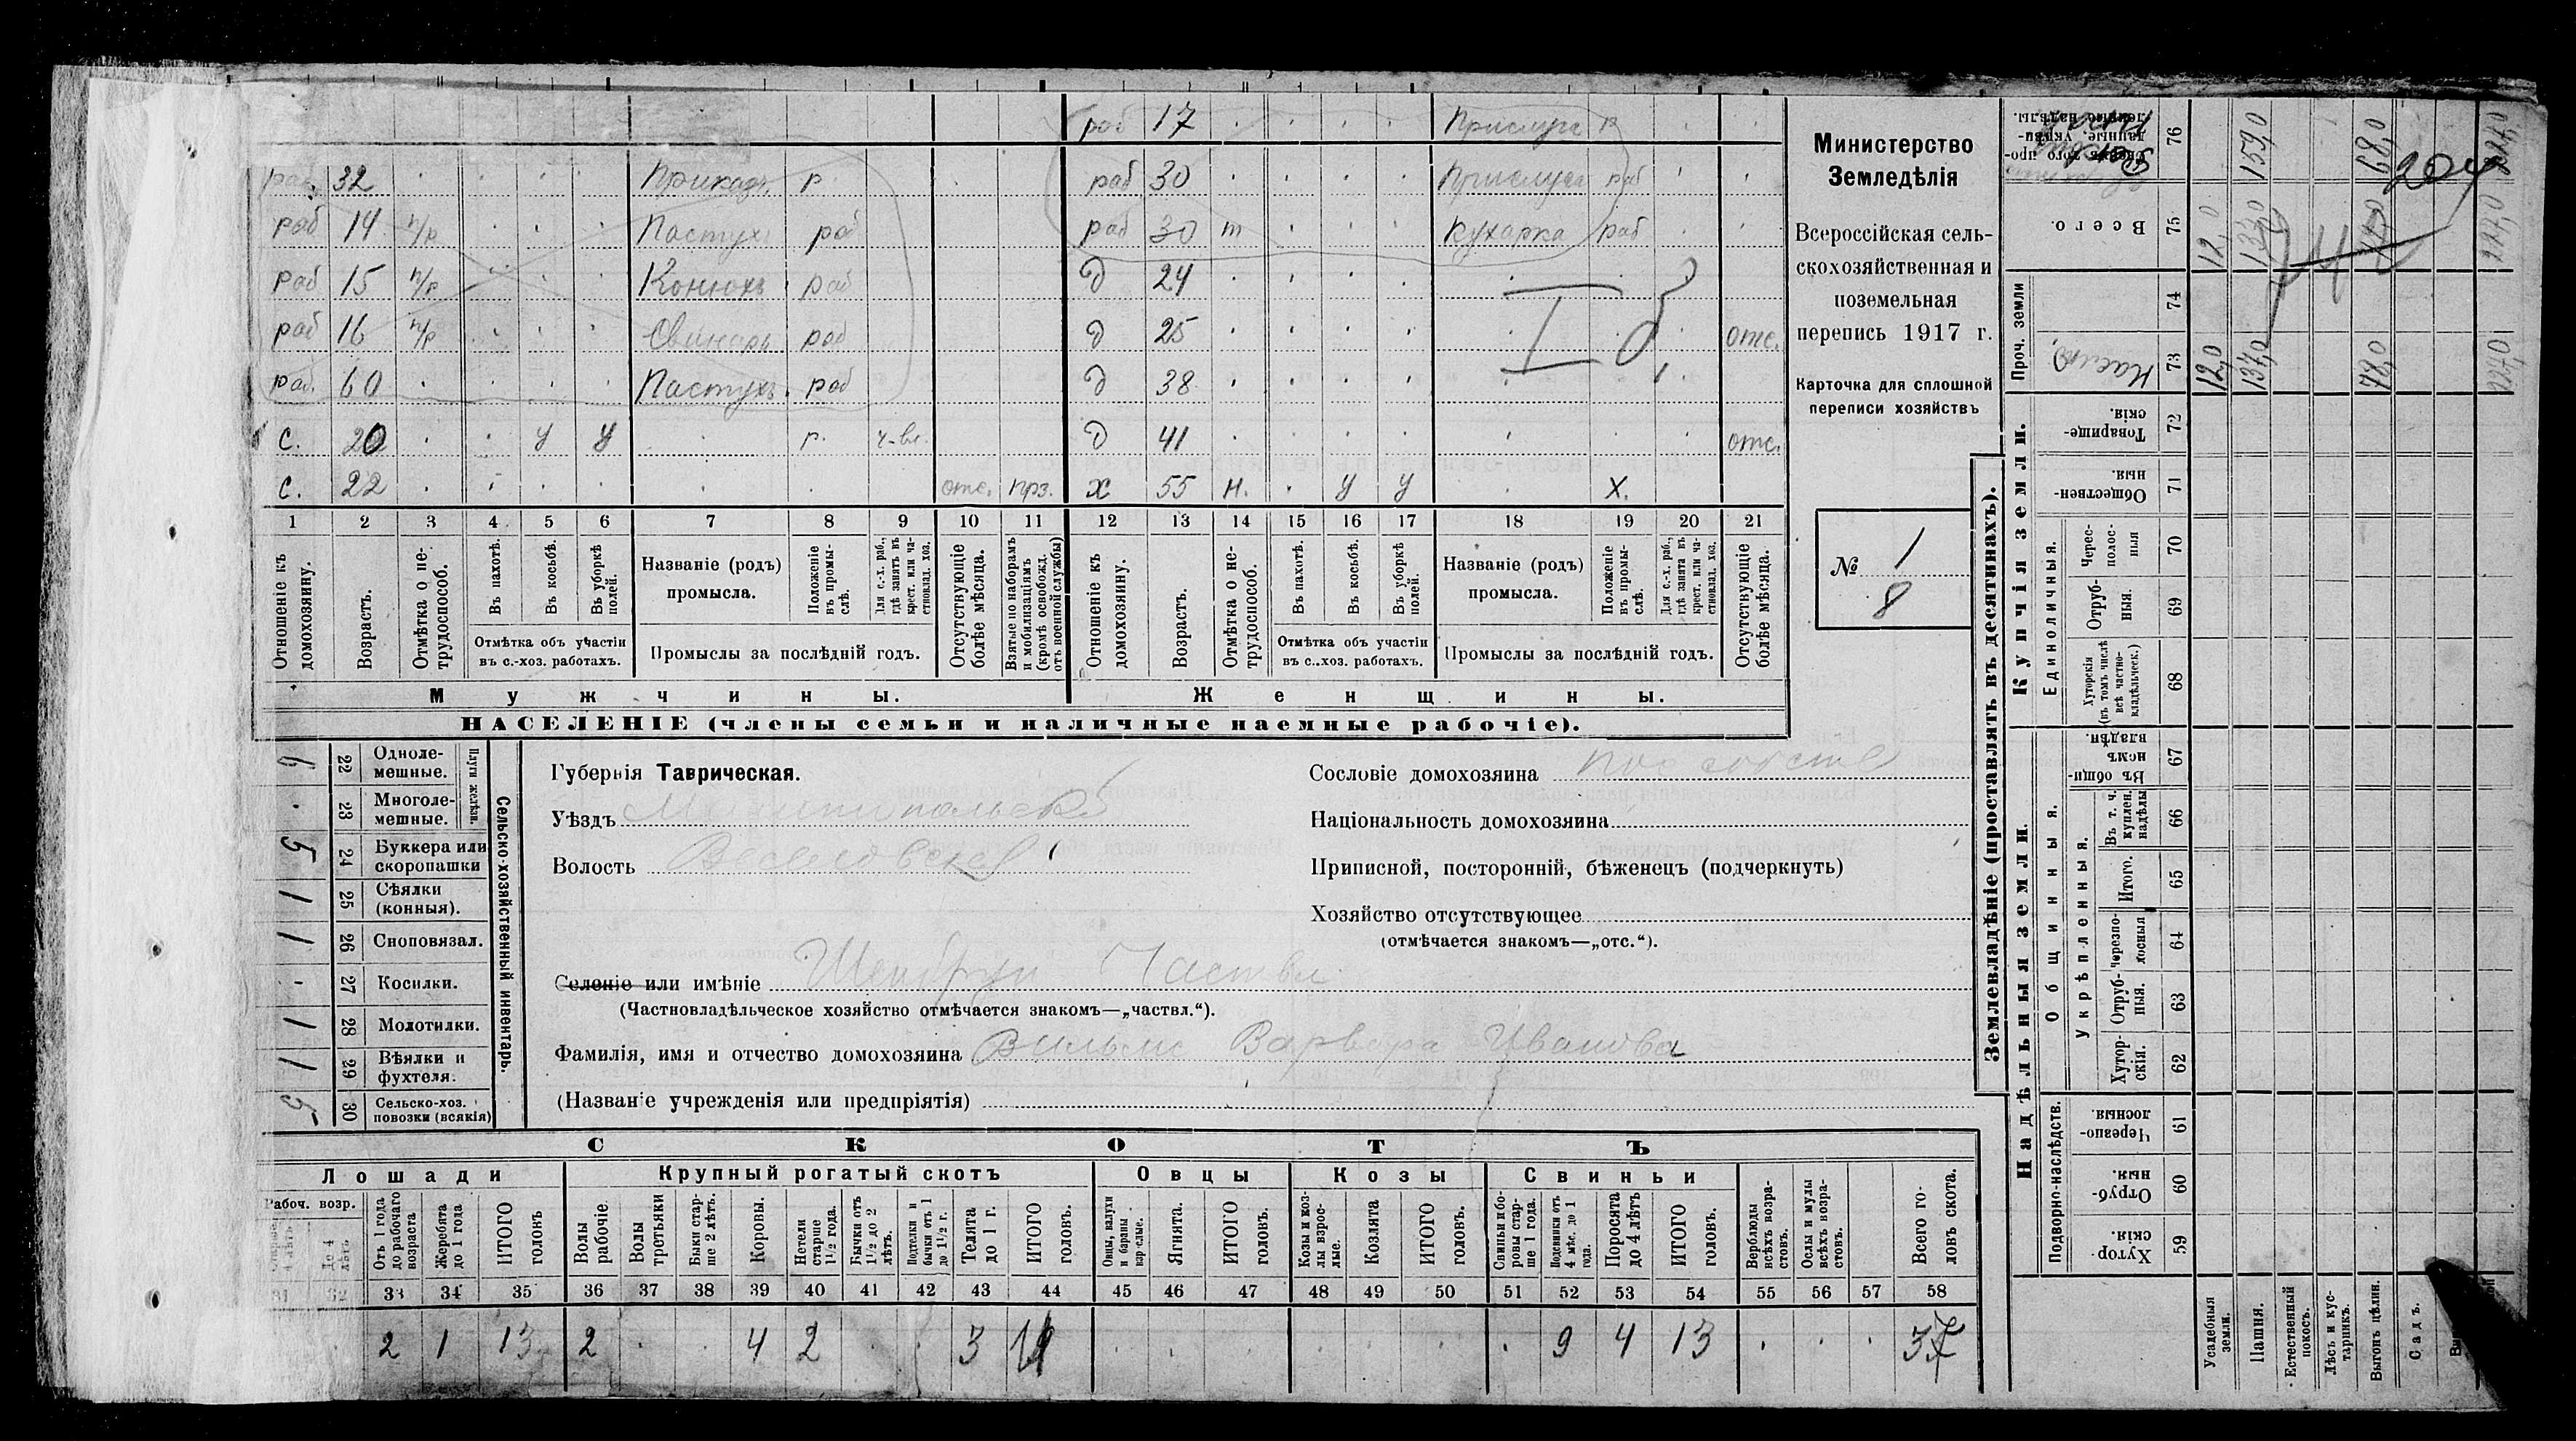 раб 17 . . . . Прислуга . .
раб. 32 . . . . Приказч. р. раб 30 . . . . Прислуга раб . .
раб 14 н/р . . . Пастухъ раб раб 30 т . . . Кухарка раб .
раб 15 н/р . . . Конюхъ раб д 24 . . . . .
раб 16 н/р . . . Свинарь раб д 25 . . . . . отс.
раб. 60 . . . . Пастухъ раб д 38 . . . . .
с. 20 . . у у . г. ч-вл. д 41 . . . . . . отс.
с. 22 . . . . . . отс. прз. х 55 н. . у у . х.
1 2 3 4 5 6 7 8 9 10 11 12 13 14 15 16 17 18 19 20 21
Отношеніе къ домохозяину.
Возрастъ.
Отмѣтка о не-трудоспособ.
Въ пахотѣ.
Въ косьбѣ.
Въ уборкѣ полей.
Отмѣтка объ участіи въ с.-хоз. работахъ.
Названіе (родъ) промысла.
Положеніе въ промы-слѣ.
Для с.-х. раб., гдѣ занятъ въ крест. или ча-стновлад. хоз.
Промыслы за послѣдній годъ.
Отсутствующіе болѣе мѣсяца.
Взятые по наборамъ и мобилизаціямъ (кромѣ освобожд. отъ военной службы)
Отношеніе къ домохозяину.
Возрастъ.
Отмѣтка о не-трудоспособ.
Въ пахотѣ.
Въ косьбѣ.
Въ уборкѣ полей.
Отмѣтка объ участіи въ с.-хоз. работахъ.
Названіе (родъ) промысла.
Положеніе въ промы-слѣ.
Для с.-х. раб., гдѣ занята въ крест. или ча-стновлад. хоз.
Промыслы за послѣдній годъ.
Отсутствующіе болѣе мѣсяца.
Мужчины. Женщины.
НАСЕЛЕНІЕ (члены семьи и наличные наемные рабочіе).
Министерство
Земледѣлія
Всероссійская сель-
скохозяйственная и
поземельная
перепись 1917 г.
Карточка для сплошной
переписи хозяйствъ
№ 1
8
6 22 Одноле-мешные.
. 23 Многоле-мешные.
Плуги желѣзн.
5 24 Буккера или скоропашки
1 25 Сѣялки (конныя).
1 26 Сноповязал.
. 27 Косилки.
1 28 Молотилки.
1 29 Вѣялки и фухтеля.
5 30 Сельско-хоз. повозки (всякія)
Сельско-хозяйственный инвентарь.
Губернія Таврическая.
Уѣздъ Мелитопольскій
Волость Веселовская
Селеніе или имѣніе Частвл
(Частновладѣльческое хозяйство отмѣчается знакомъ—„частвл.“).
Фамилія, имя и отчество домохозяина Вильмс Варвара Иванова
(Названіе учрежденія или предпріятія)
Сословіе домохозяина
Національность домохозяина
Приписной, посторонній, бѣженецъ (подчеркнуть)
Хозяйство отсутствующее
(отмѣчается знакомъ—„отс.“).
СКОТЪ
Лошади Крупный рогатый скотъ Овцы Козы Свиньи
Рабоч. возр.
До 4 лѣтъ
Отъ 1 года до рабочаго возраста
Жеребята до 1 года
ИТОГО головъ
Волы рабочіе.
Волы третьяки
Быки стар-ше 2 лѣтъ.
Коровы.
Нетели старше 1½ года.
Бычки отъ 1½ до 2 лѣтъ.
Подтелки и бычки отъ 1 до 1½ г.
Телята до 1 г.
ИТОГО головъ.
Овцы, валухи и бараны взрослые.
Ягнята.
ИТОГО головъ.
Козы и коз-лы взрос-лые.
Козлята
ИТОГО головъ.
Свиньи и бо-ровы стар-ше 1 года.
Подсвинки отъ 4 мѣс. до 1 года.
Поросята до 4 лѣтъ
ИТОГО головъ.
Верблюды всѣхъ возра-стовъ.
Ослы и мулы всѣхъ возра-стовъ.
Всего го-ловъ скота.
31 32 33 34 35 36 37 38 39 40 41 42 43 44 45 46 47 48 49 50 51 52 53 54 55 56 57 58
2 1 13 2 . . 4 2 . . 3 11 . . . . . . . 9 4 13 . . . 37
Землевладѣніе (проставлять въ десятинахъ).
Надѣльныя земли. Купчія земли. Проч. земли
Подворно-наслѣдств. Общинныя. Укрѣпленныя. Единоличныя.
Хутор-скія. 59
Отруб-ныя. 60
Черезпо-лосныя 61
Хутор-скія. 62
Отруб-ныя. 63
черезпо-лосныя 64
Итого. 65
Въ т. ч. куплен. надѣлы 66
Въ общи-номъ владѣн. 67
Хуторскія (въ томъ числѣ всѣ частно-владѣльческ.) 68
Отруб-ныя. 69
Черес-полос-ныя 70
Обществен-ныя. 71
Товарище-скія. 72
73
74
Всего. 75
76
Усадебныя земли. 12,0 12,0
Пашня. 137,0 159,0
Естественный покосъ.
Лѣсъ и кус-тарникъ.
Выгонъ цѣлин. 78,0 68,0
Садъ.
204